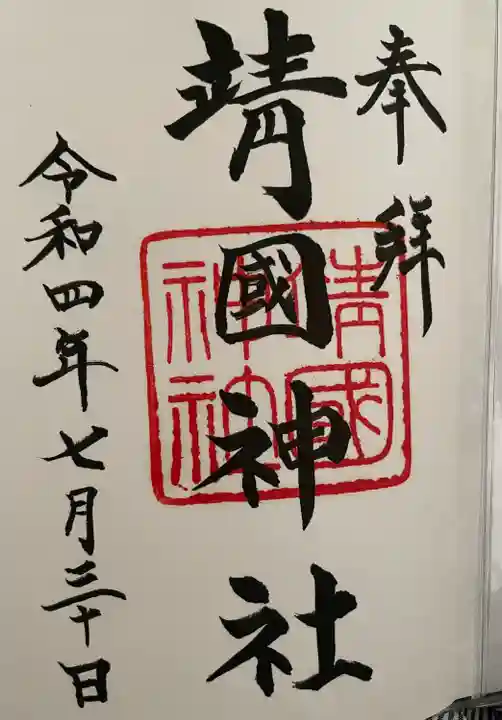 奉拜
靖國神社
靖國神社
令和四年七月三十日